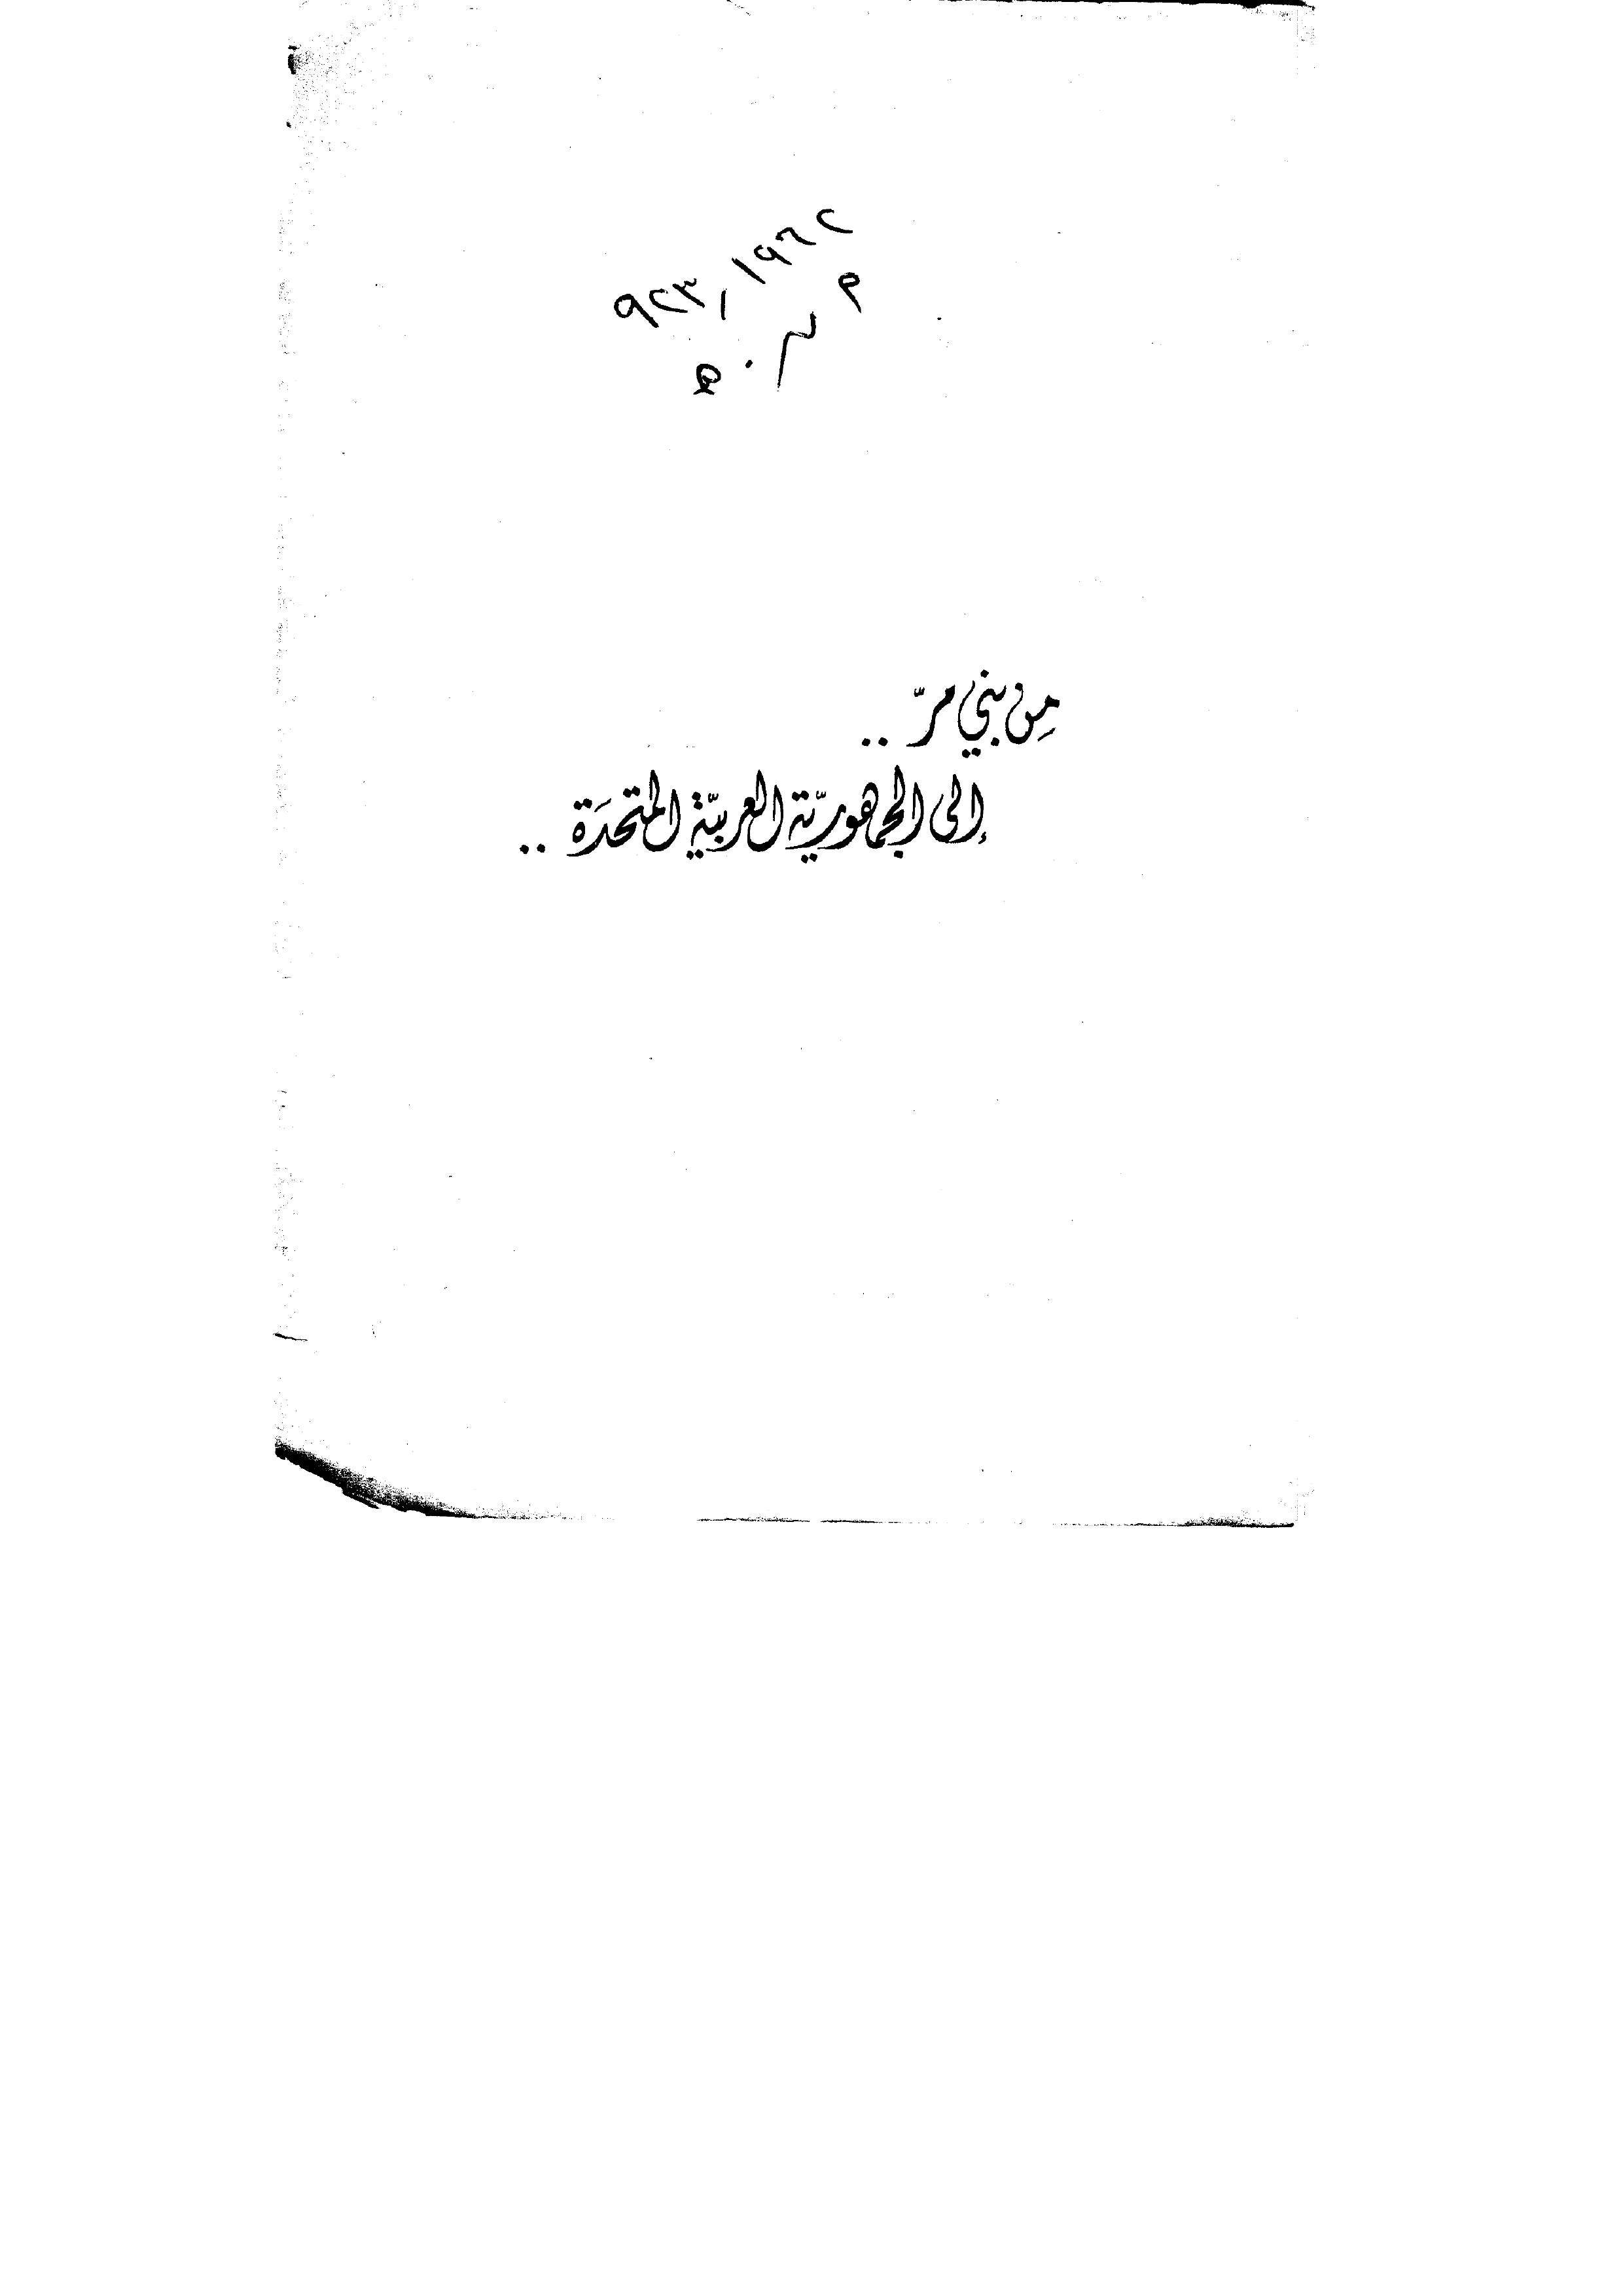 ٩٢٣,١٩٦٢
م
مِن بني مرّ ..
إلى الجمهوريّة العربيّة المتحدَة ..